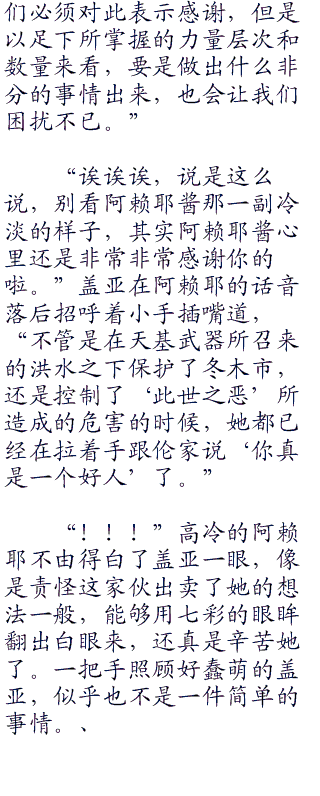 们必须对此表示感谢，但是
以足下所掌握的力量层次和
数量来看，要是做出什么非
分的事情出来，也会让我们
困扰不已。”
“诶诶诶，说是这么
说，别看阿赖耶酱那一副冷
淡的样子，其实阿赖耶酱心
里还是非常非常感谢你的
啦。”盖亚在阿赖耶的话音
落后招呼着小手插嘴道，
“不管是在天基武器所召来
的洪水之下保护了冬木市，
还是控制了‘此世之恶’所
造成的危害的时候，她都已
经在拉着手跟伦家说‘你真
是一个好人’了。”
“！！！”高冷的阿赖
耶不由得白了盖亚一眼，像
是责怪这家伙出卖了她的想
法一般，能够用七彩的眼眸
翻出白眼来，还真是辛苦她
了。一把手照顾好蠢萌的盖
亚，似乎也不是一件简单的
事情。、